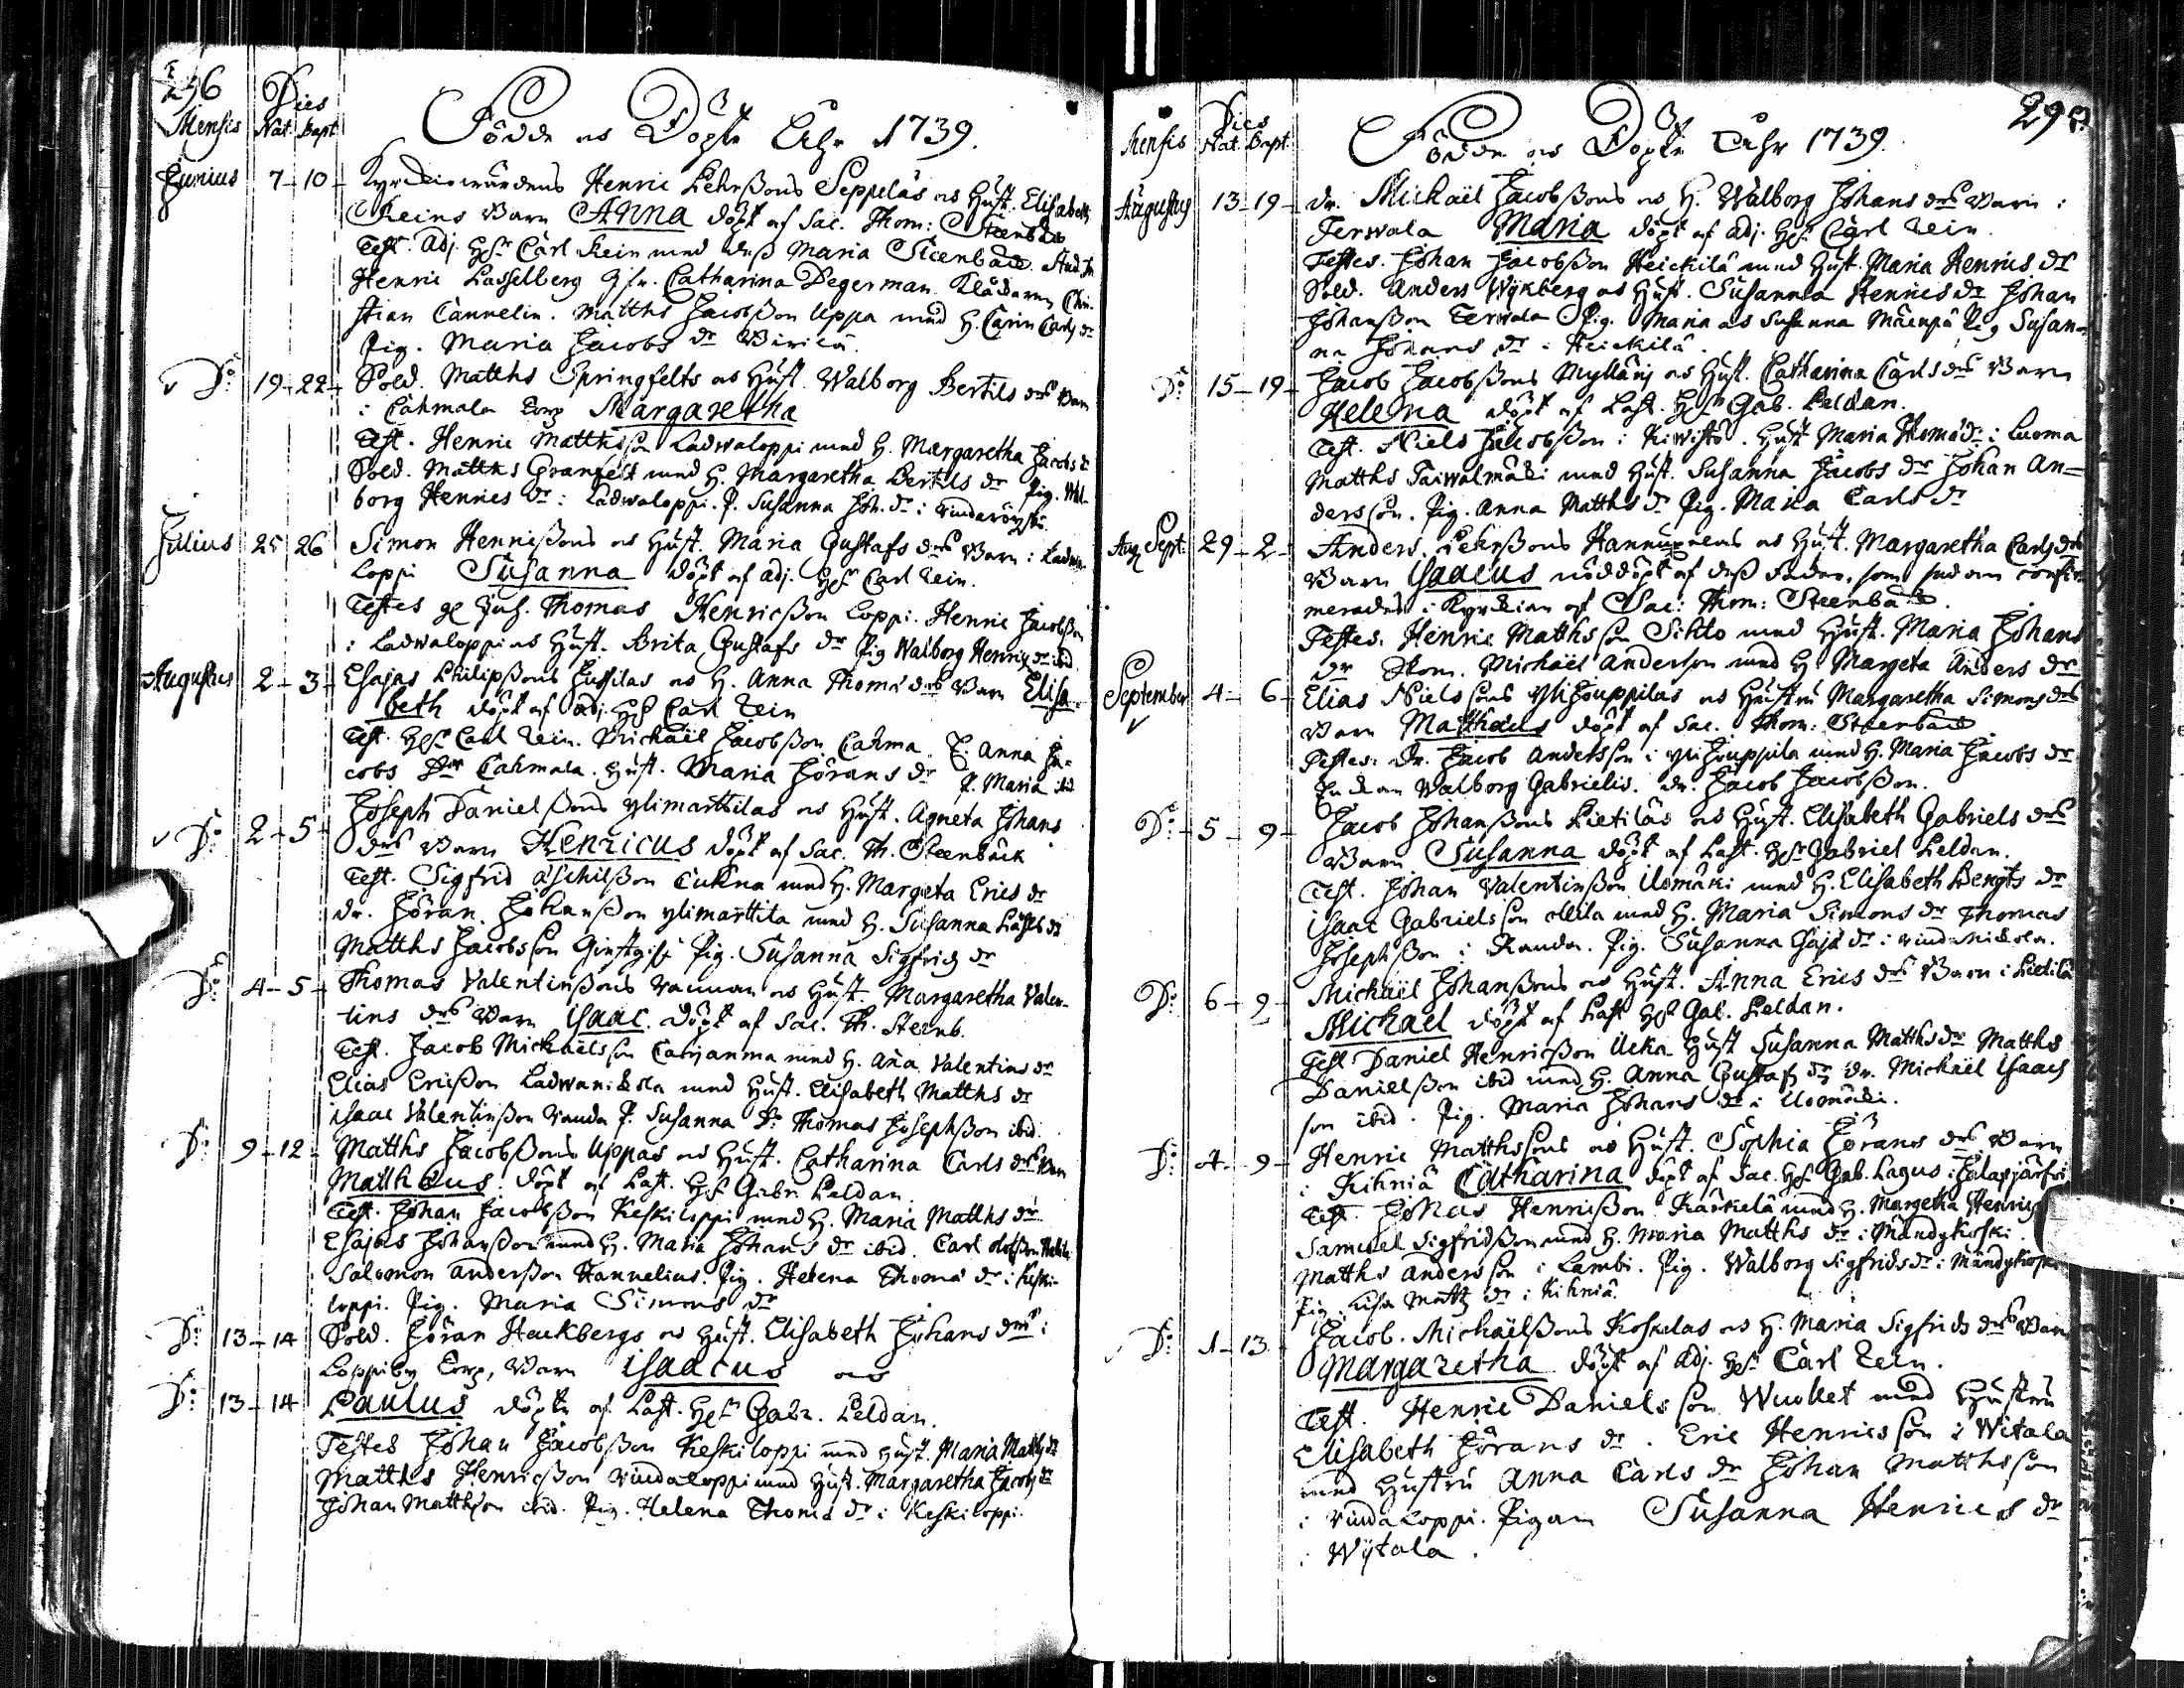 296
Dies
Mensis Nat. Bapt.
Födde och Döpte Åhr 1739.
Junius 7-10- Kyrckiowärdens Henric Pehrßons Seppeläs och Hust. Elisabeth
Reins Barn Anna döpt af Sac. Thom: Steenbäck
Test. Adj. H:r Carl Rein med deß Maria Steenbäck. Stud.
Henric Hasselberg Jfr. Catharina Degerman. Klåckaren Chri-
stian Cannelin. Matths Jacobßon Uppa med H. Carin Carls dr
Pig. Maria Jacobs dr
D:o 19-22- Sold. Matths Springfelts och Hust. Walborg Bertils drs Barn
i Cahmala Torp Margaretha
Test. Henric Matthsson Ladwaloppi med H. Margaretha Jacobs dr
Sold. Matths Granfelt med H. Margaretha Bertils dr Pig. Wal-
borg Henrics dr i Ladwaloppi. P. Susanna Joh. dr i
Julius 25 26 Simon Henricßons och Hust. Maria Gustafs drs Barn i Ladwa
loppi Susanna döpt af Adj. H:r Carl Rein.
Testes Thomas Henricßon Loppi. Henric Jacobßon
i Ladwaloppi och Hust. Brita Gustafs dr Pig Walborg Henrics dr ibid
Augustus 2-3- Esajas Philipßons Jussilas och H. Anna Thomæ drs Barn Elisa-
beth döpt af Adj. H:r Carl Rein
Test. H:r Carl Rein. Michaël Jacobßon Cahma. E. Anna Ja-
cobs dr Cahmala. Hust. Maria Jörans dr P. Maria ibid
D:o 2-5- Joseph Danielßons Ylimarttilas och Hust. Agneta Johans
drs Barn Henricus döpt af Sac. Th. Steenbäck
Test. Sigfrid Äschilßon Cukna med H. Margeta Erics dr
dr. Jöran Johanßon Ylimarttila med H. Susanna dr
Matths Jacobsson Pig. Susanna Sigfrids dr
D:o 4-5- Thomas Valentinßons och Hust. Margaretha Valen-
tins drs Barn Isaac döpt af Sac. Th. Steenb.
Test. Jacob Michaëlsson Carjanma med H. Aña Valentins dr
Elias Ericßon Ladwanickola med Hust. Elisabeth Matths dr
Isaac Valentinßon Randa P. Susanna dr Thomas Josephßon ibid
D:o 9-12- Matths Jacobßons Uppas och Hust. Catharina Carls drs Barn
Matthæus döpt af Past. H:r Gabr. Peldan.
Test. Johan Jacobßon Keskiloppi med H. Maria Matths dr
Esajas Johanßon med H. Maria Johans dr ibid. Carl Olofßon
Salomon Anderßon Hannelius. Pig. Helena Thomæ dr i Keski-
loppi. Pig. Maria Simons dr
D:o 13-14 Sold. Jöran Hackbergs och Hust. Elisabeth Johans drs i
Loppiby Torp, Barn Isaacus och
D:o 13-14 Paulus döpte af Past. H:r Gabr. Peldan.
Testes Johan Jacobßon Keskiloppi med Hust. Maria Matths dr
Matths Henricßon Rindaloppi med Hust. Margaretha Jacobs dr
Johan Matthson ibid. Pig. Helena Thomæ dr i Keskiloppi.
Dies
Mensis Nat. Bapt.
Födde och Döpte Åhr 1739.
Augustus 13-19- dr. Michaël Jacobßons och H. Walborg Johans drs Barn i
Terwala Maria döpt af Adj. H:r Carl Rein.
Testes. Johan Jacobßon Heickilä med Hust. Maria Henrics dr
Sold. Anders Wykberg och Hust. Susanna Henrics dr Johan
Johanßon Terwala Pig. Maria och Susanna Mäenpä Pig Susan-
na Johans dr i Heickilä.
D:o 15-19- Jacob Jacobßons Myllärj och Hust. Catharina Carls drs Barn
Helena döpt af Past. H:r Gab. Peldan.
Test. Niels Jacobßon i Kiwistö. Hust Maria Thomædr i Luoma
Matths Taiwalmäki med Hust. Susanna Jacobs dr Johan An-
dersson. Pig. Anna Matths dr Pig. Maria Carls dr
Aug Sept. 29-2- Anders Pehrßons Hannuxens och Hust. Margaretha Carls drs
Barn Isaacus nöddöpt af deß fader, som sedan confir-
merades i Kyrckian af Sac: Thom: Steenbäck.
Testes. Henric Matthsson Sihto med Hust. Maria Johans
dr Skom. Michaël Anderson med H. Margeta Anders dr
September 4-6- Elias Nielssons Ylijouppilas och Hustru Margaretha Simons drs
Barn Matthæus döpt af Sac. Thom: Steenbäck
Testes. dr. Jacob Andersson i Ylijouppila med H. Maria Jacobs dr
Enckan Walborg Gabrielis. dr. Jacob Jacobßon.
D:o 5-9- Jacob Johanßons Pietiläs och Hust. Elisabeth Gabriels drs
Barn Susanna döpt af Past. H:r Gabriel Peldan.
Test. Johan Valentinßon Uomäki med H. Elisabeth Bengts dr
Isaac Gabrielsson Ollila med H. Maria Simons dr Thomas
Josephßon i Randa. Pig. Susanna Esajæ dr i Rindanickola.
D:o 6-9- Michaël Johanßons och Hust. Anna Erics drs Barn i Pietilä
Michael döpt af Past H:r Gab. Peldan.
Test Daniel Henricßon Ucka Hust Susanna Matthsdr Matths
Danielßon ibid med H. Anna Gustafs dr dr. Michaël Isaacs
son ibid. Pig. Maria Johans dr i Uomäki.
D:o 4-9- Henric Matthssons och Hust. Sophia Jörans drs Barn
i Kihniä Catharina döpt af Sac. H:r Gab. Lagus i Jalasjärfwi
Test. Johas Henricßon Kärkelä med H. Margetha Henrics
Samuel Sigfridßon med H. Maria Matths dr i Mändykoski.
Matths Andersson i Lambi. Pig. Walborg Sigfridsdr i Mändykoski
Pig. Lisa Matts dr i Kihniä.
D:o 1-13 Jacob Michaëlßons Koskelas och H. Maria Sigfrids drs Barn
Margaretha döpt af Adj. H:r Carl Rein.
Test. Henric Danielsson Wuollet med Hustru
Elisabeth Jörans dr. Eric Henricsson i Witala
med Hustru Anna Carls dr Johan Matthsson
i Rindaloppi. Pigan Susanna Henrics dr
i Wÿtala.